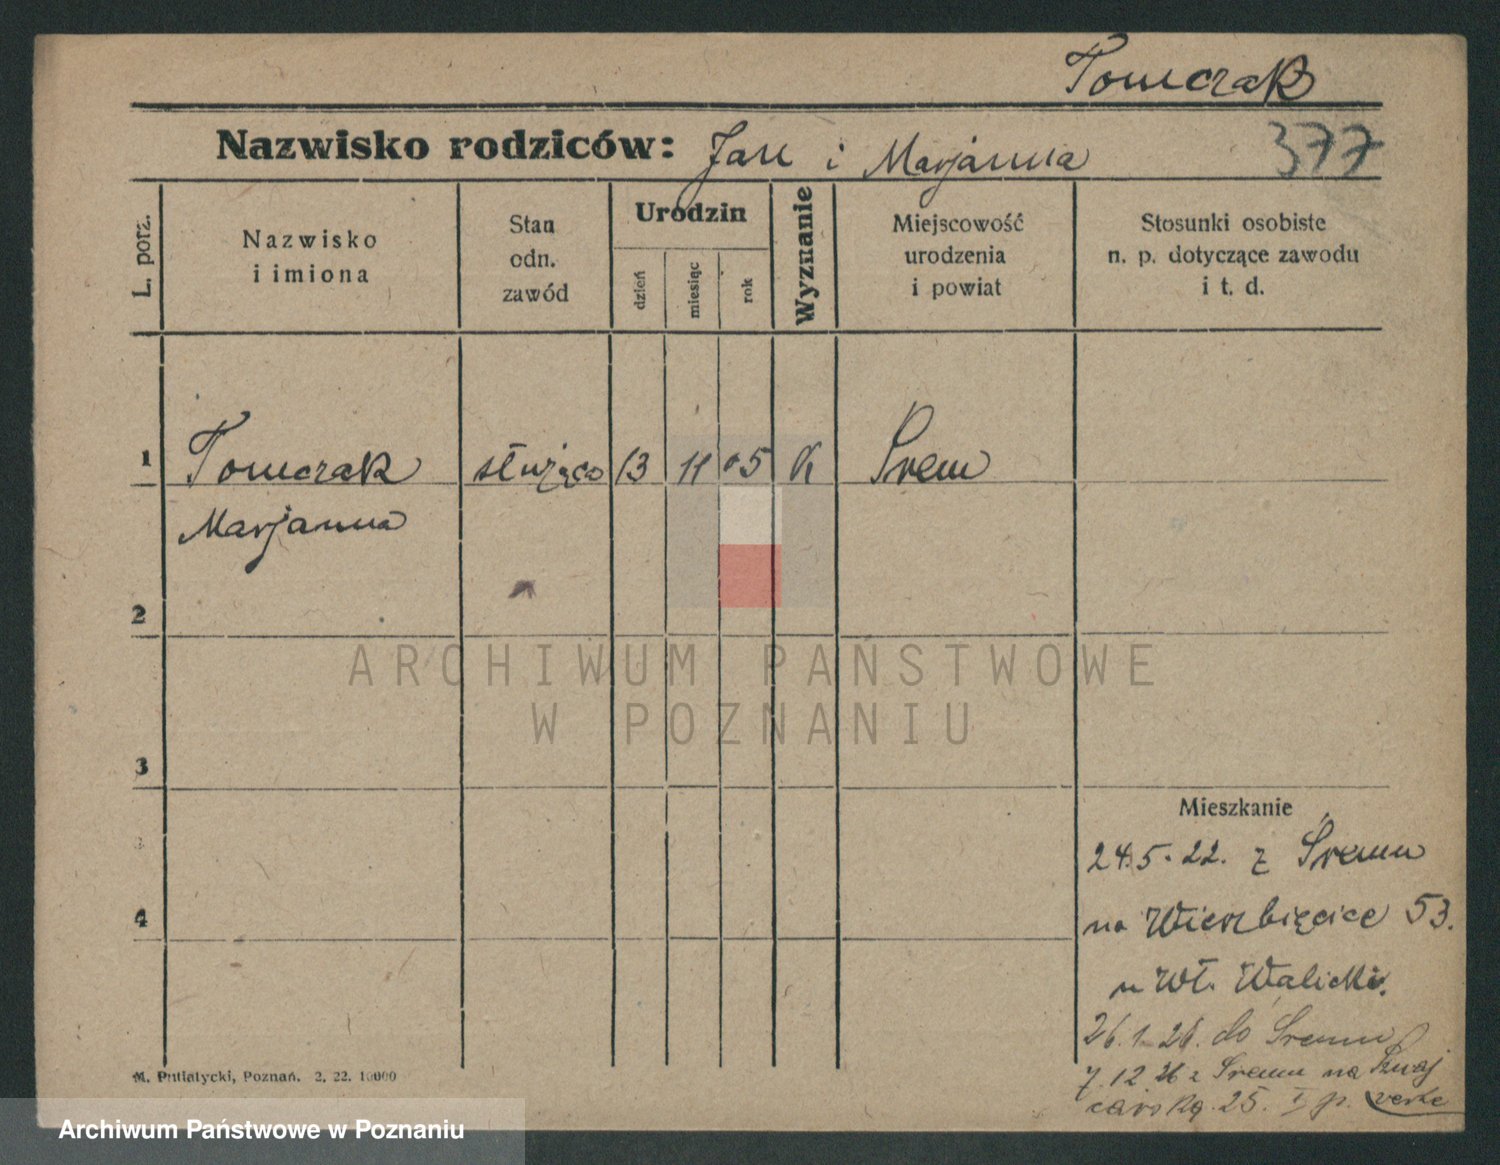 Tomczak
Nazwisko rodziców: Jan i Marjanna
377
L. porz.
Nazwisko
i imiona
Stan
odn.
zawód
Urodzin
dzień
miesiąc
rok
Wyznanie
Miejscowość
urodzenia
i powiat
Stosunki osobiste
n. p. dotyczące zawodu
i t. d.
1 Tomczak służąca 13 11 05 K Śrem
Marjanna
2
3
4
ARCHIWUM PAŃSTWOWE
W POZNANIU
Mieszkanie
24.5.22. z Śremu
na Wierzbięcice 53.
u Wł. Walicki.
26.1.26. do Śremu
7.12.26 z Śremu na Szwaj
carską 25. I p. verte
M. Putiatycki, Poznań. 2. 22. 10000
Archiwum Państwowe w Poznaniu